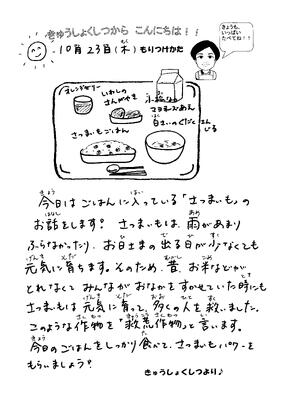 きゅうしょくしつから こんにちは!!
10月23日(木)もりつけかた
きょうも、
いっぱい
たべてね!!
オレンジゼリー
いわしの
さんがやき
さつまいもごはん
白玉いりのくだくさん
じる
今日はごはんに入っている「さつまいも」の
お話をします。さつまいもは、雨があまり
ふらなかったり、お日さまの出る日が少なくても
元気に育ちます。そのため、昔、お米などが
とれなくて みんなが おなかを すかせていた時にも
さつまいもは 元気に育って、多くの人を救いました。
このような作物を「救荒作物」と言います。
今日のごはんをしっかり食べて、さつまいもパワーを
もらいましょう♪
きゅうしょくしつより♪